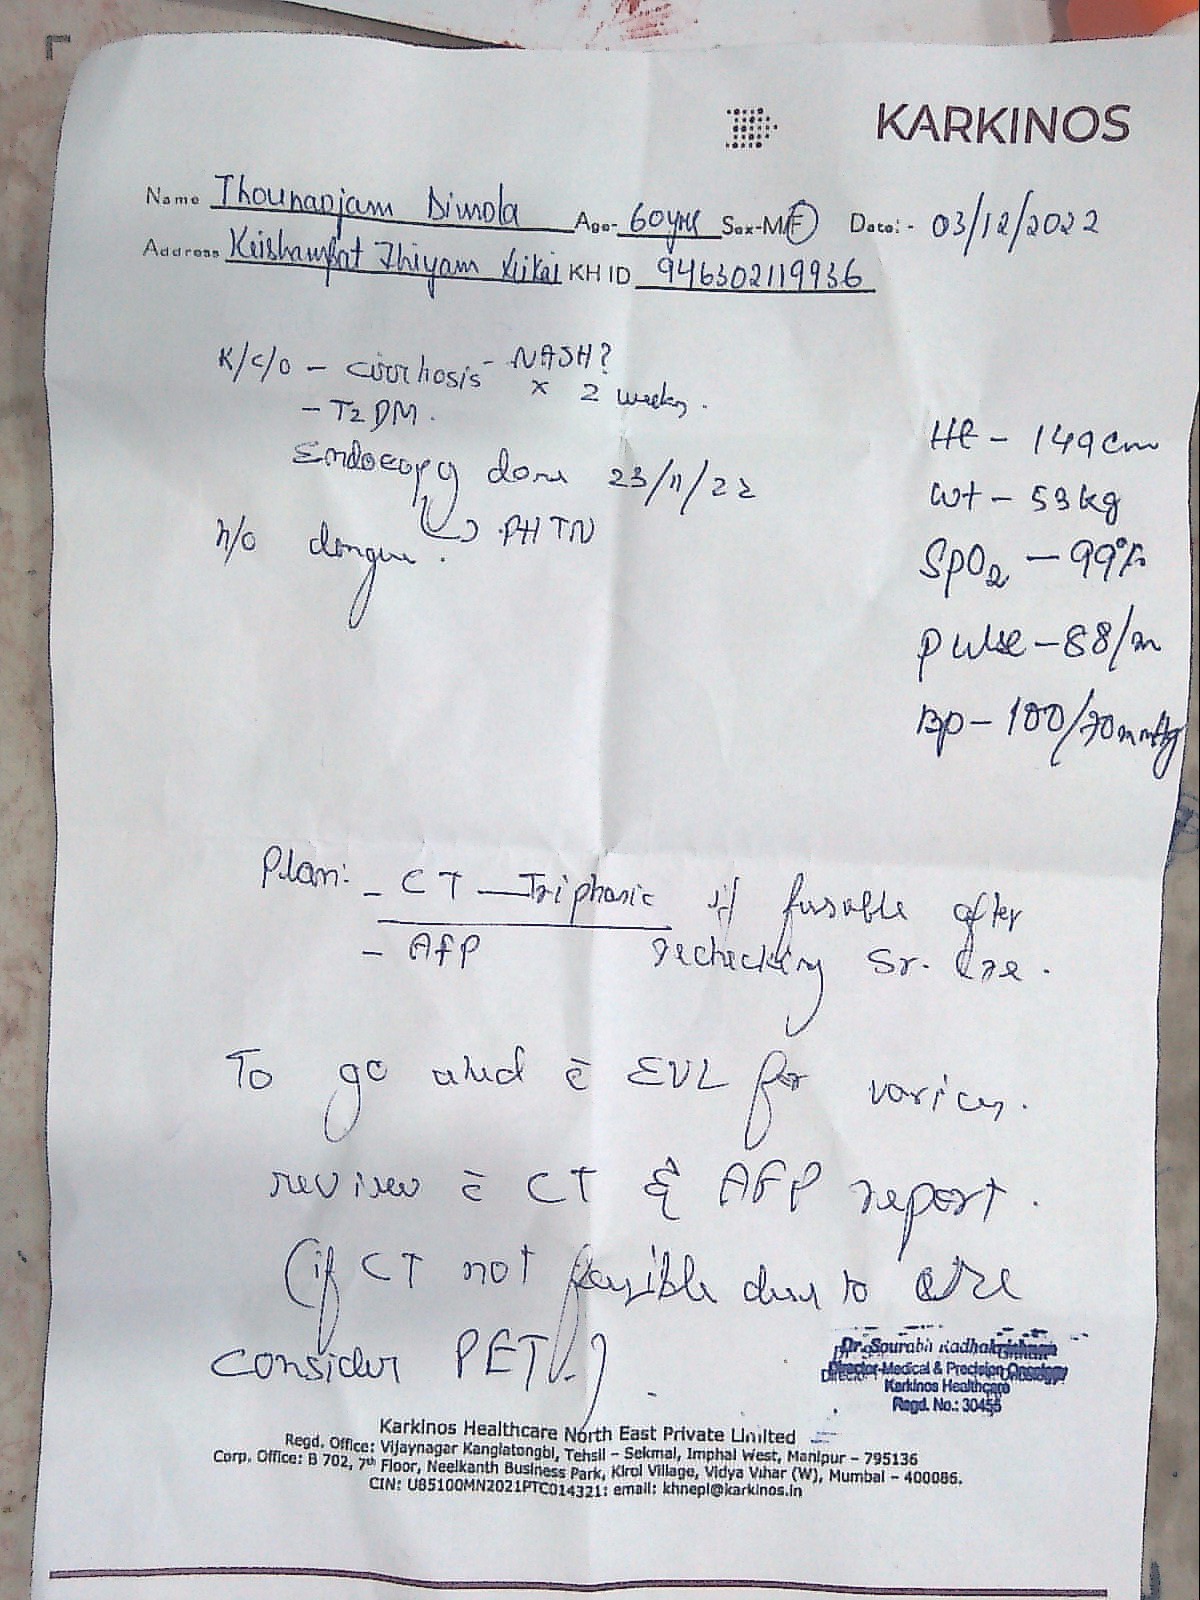 KARKINOS
Name Thounaojam Dimola Age- 60yrs Sex-M/F Date:- 03/12/2022
Address Keishampat Thiyam Leikai KH ID 946302119936
K/c/o - cirrhosis - NASH?
x 2 weeks.
- T2 DM.
Endocopy done 23/11/22
PHTN
h/o dengue.
Ht - 149cm
wt - 53kg
SpO2 - 99%
pulse - 88/m
BP - 100/70mmHg
Plan: - CT - Triphasic if feasable after
- AFP rechecking Sr. Cre.
To go ahed c̄ EVL for varices.
review c̄ CT & AFP report.
(if CT not feasible due to cre
consider PET.)
Dr. Sourabh Radhakrishnan
Director-Medical & Precision Oncology
Karkinos Healthcare
Regd. No.: 30455
Karkinos Healthcare North East Private Limited
Regd. Office: Vijaynagar Kanglatongbi, Tehsil - Sekmai, Imphal West, Manipur - 795136
Corp. Office: B 702, 7th Floor, Neelkanth Business Park, Kirol Village, Vidya Vihar (W), Mumbai - 400086.
CIN: U85100MN2021PTC014321: email: khnepl@karkinos.in